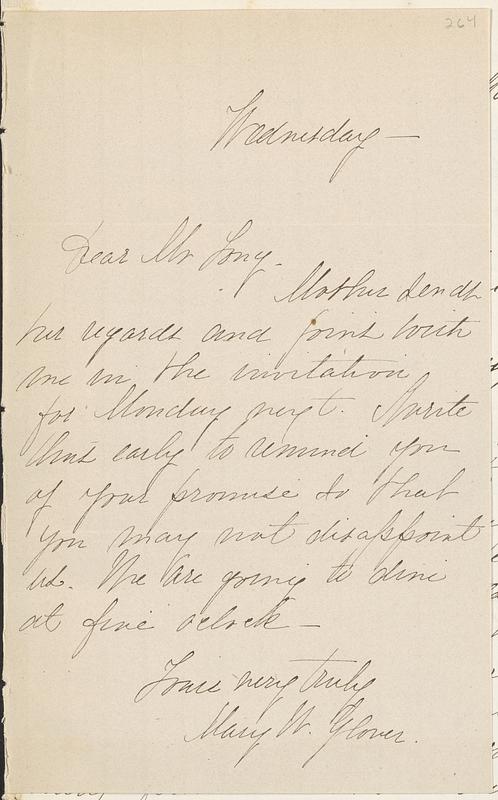 264
Wednesday —
Dear Mr Long.
Mother sends
her regards and joins with
me in the invitation
for Monday next. I write
thus early to remind you
of your promise so that
you may not disappoint
us. We are going to dine
at five oclock —
Yours very truly
Mary W. Glover.